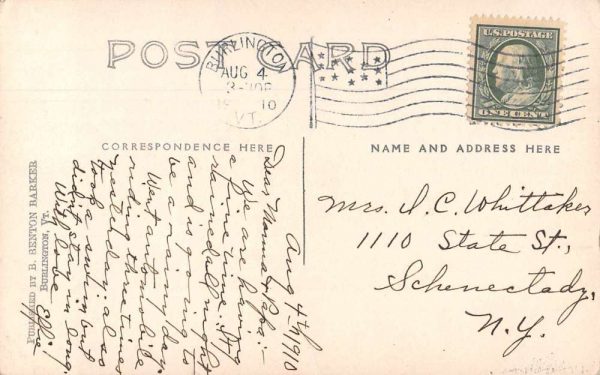 POST CARD
BURLINGTON
AUG 4
3-30P
19 10
VT.
U.S. POSTAGE
ONE CENT
CORRESPONDENCE HERE
NAME AND ADDRESS HERE
Aug 4th/1910
Dear Mama & Papa:-
We are having
a fine time. It
rained all night
and is going to
be a rainy day.
Went automobile
riding three times
yesterday; also
took a swim but
didn't stay in long.
With love Effie
Mrs. I. C. Whittaker
1110 State St.,
Schenectady,
N.Y.
PUBLISHED BY B. BENTON BARKER
BURLINGTON, VT.